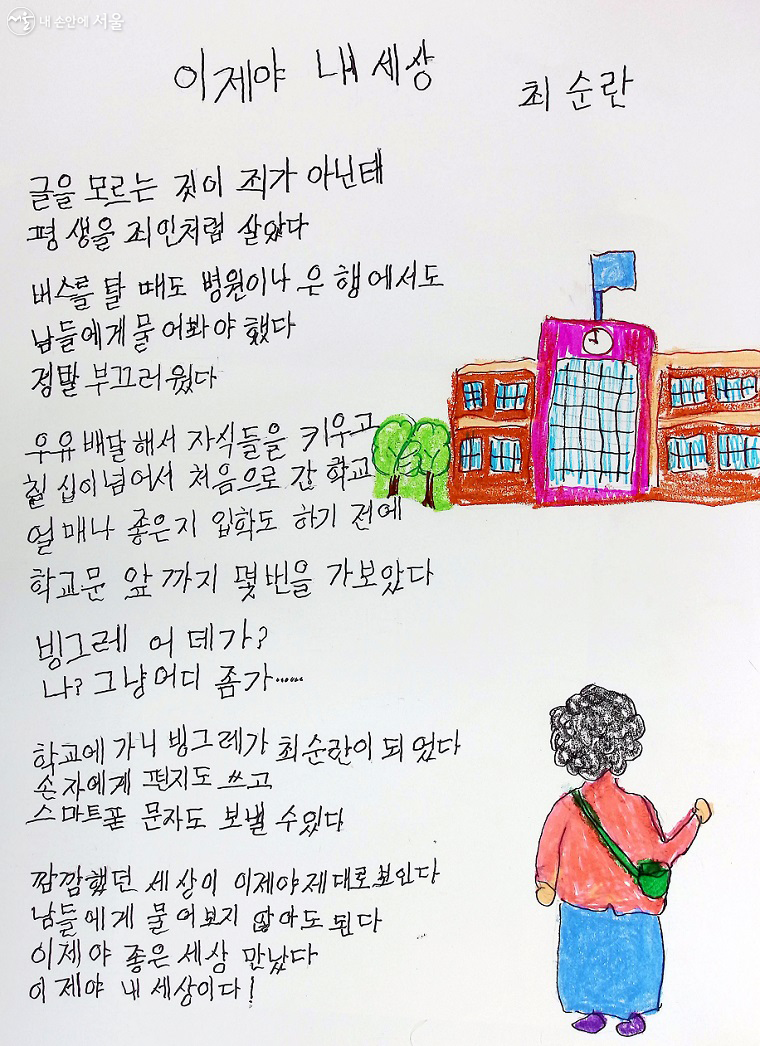 내 손안에 서울
이제야 내 세상
최순란
글을 모르는 것이 죄가 아닌테
평생을 죄인처럼 살았다
버스를 탈 때도 병원이나 은행에서도
남들에게 물어봐야 했다
정말 부끄러웠다
우유배달해서 자식들을 키우고
칠십이넘어서 처음으로 간 학교
얼매나 좋은지 입학도 하기 전에
학교문 앞까지 몇번을 가보았다
빙그레 어데가?
나? 그냥어디 좀가......
학교에 가니 빙그레가 최순란이 되었다
손자에게 편지도 쓰고
스마트폰 문자도 보낼 수있다
깜깜했던 세상이 이제야제대로보인다
남들에게 물어보지 않아도 된다
이제야 좋은 세상 만났다
이제야 내 세상이다!